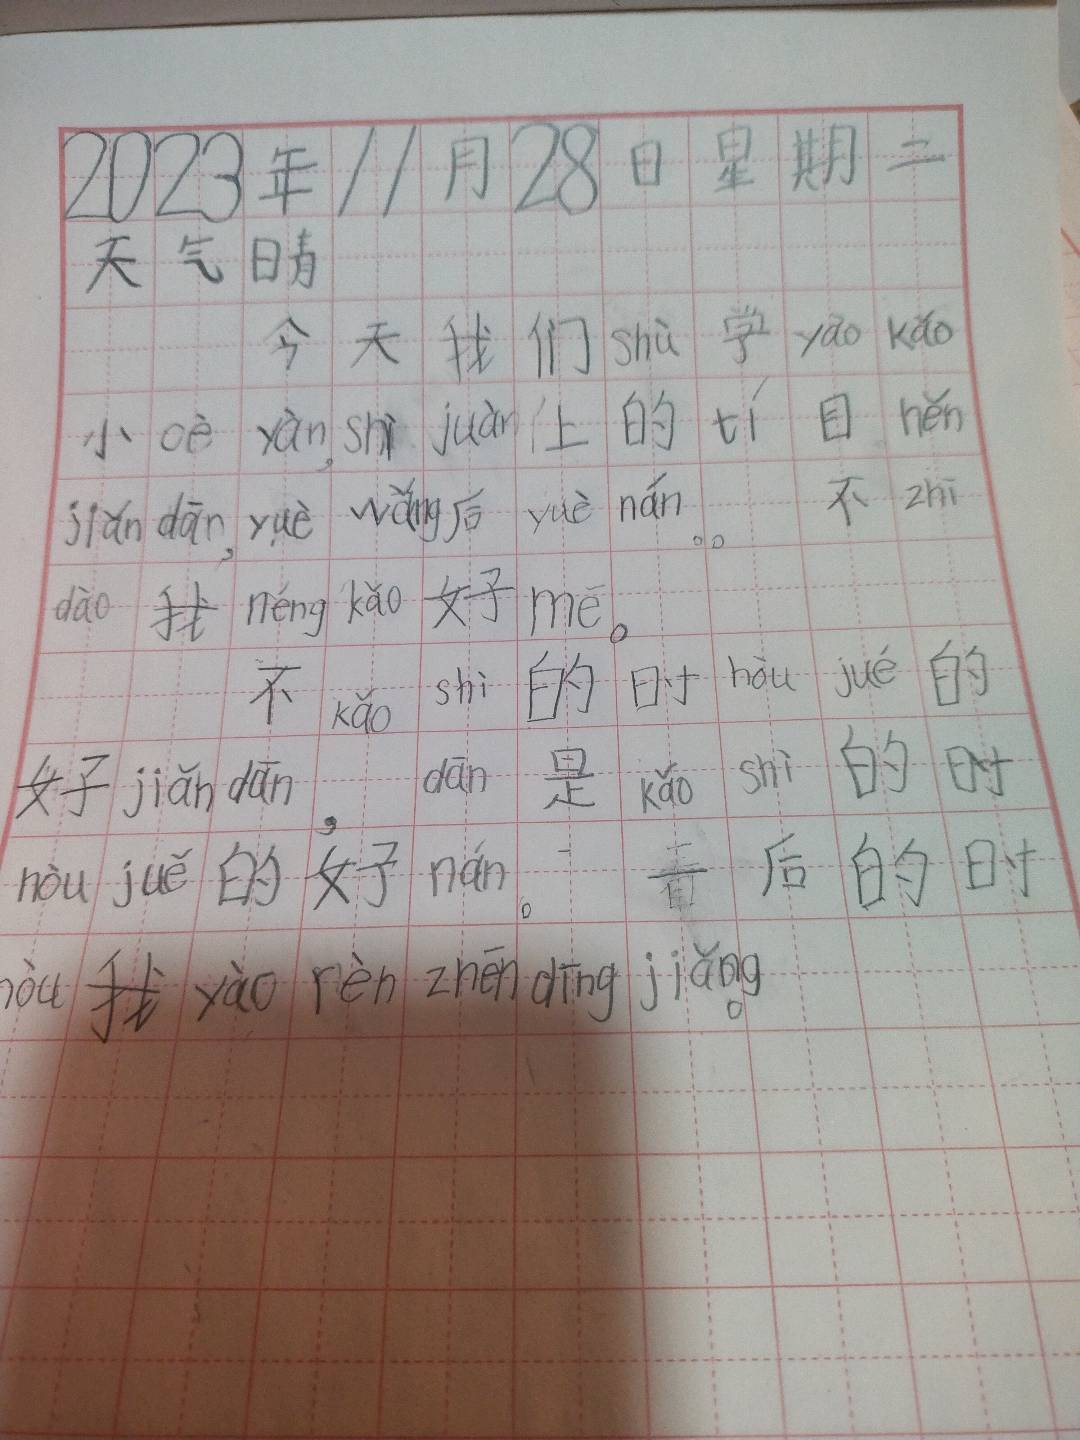 2023年11月28日星期二
天气晴
今天我们shù学yào kǎo
小cè yàn,shì juàn上的tí目hěn
jiǎn dān,yuè wǎng后yuè nán。。不zhī
dào我néng kǎo好mē。
不kǎo shì的时hòu jué的
好jiǎn dān,dān是kǎo shì的时
hòu jué的好nán。后的时
hòu我yào rèn zhēn dīng jiǎng。